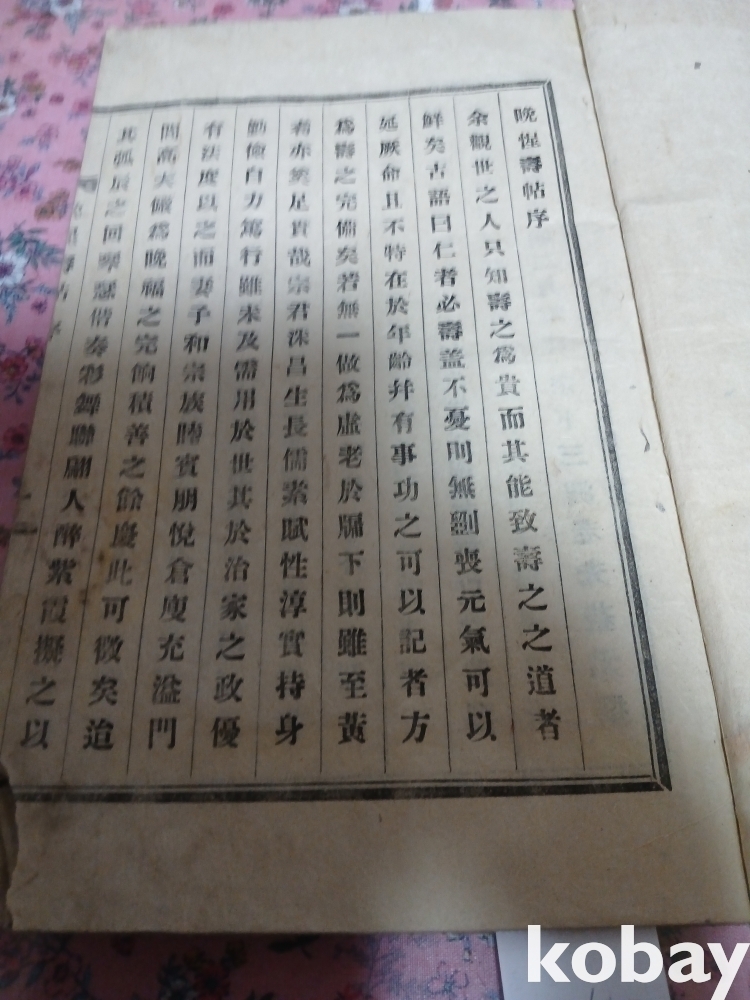 晚惺壽帖序
余觀世之人只知壽之爲貴而其能致壽之之道者
鮮矣古語曰仁者必壽盖不憂則無劉喪元氣可以
延厥命且不特在於年齡幷有事功之可以記者方
爲壽之完備矣若無一做爲虛老於牖下則雖至黃
耈亦奚足貴哉宗君洙昌生長儒素賦性淳實持身
勤儉自力篤行雖未及需用於世其於治家之政優
有法度以之而妻子和宗族睦賓朋悅倉廋充溢門
閭高大儘爲晚福之完餉積善之餘慶此可徵矣迨
其弧辰之回畧憑俗奏彩舞聯翩人醉紫霞擬之以
壽帖
序
kobay